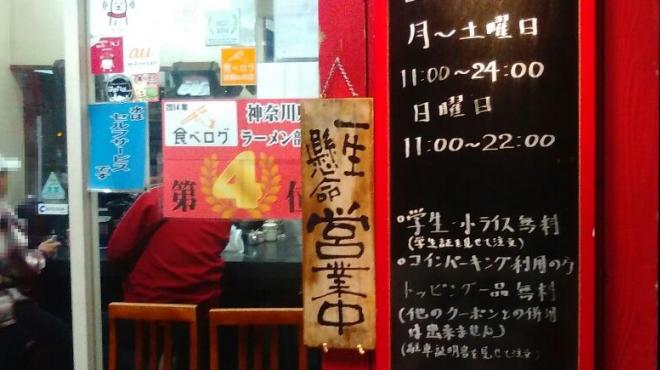 月〜土曜日
11:00〜24:00
日曜日
11:00〜22:00
○学生・小ライス無料
(学生証を見せて注文)
○コインパーキング利用の方
トッピング一品無料
(他のクーポンとの併用
は出来ません)
(駐車証明書を見せて注文)
一生
懸命
営業中
2014年
食べログ
神奈川県
ラーメン部
第4位
食べログ
au
水は
セルフサービス
です